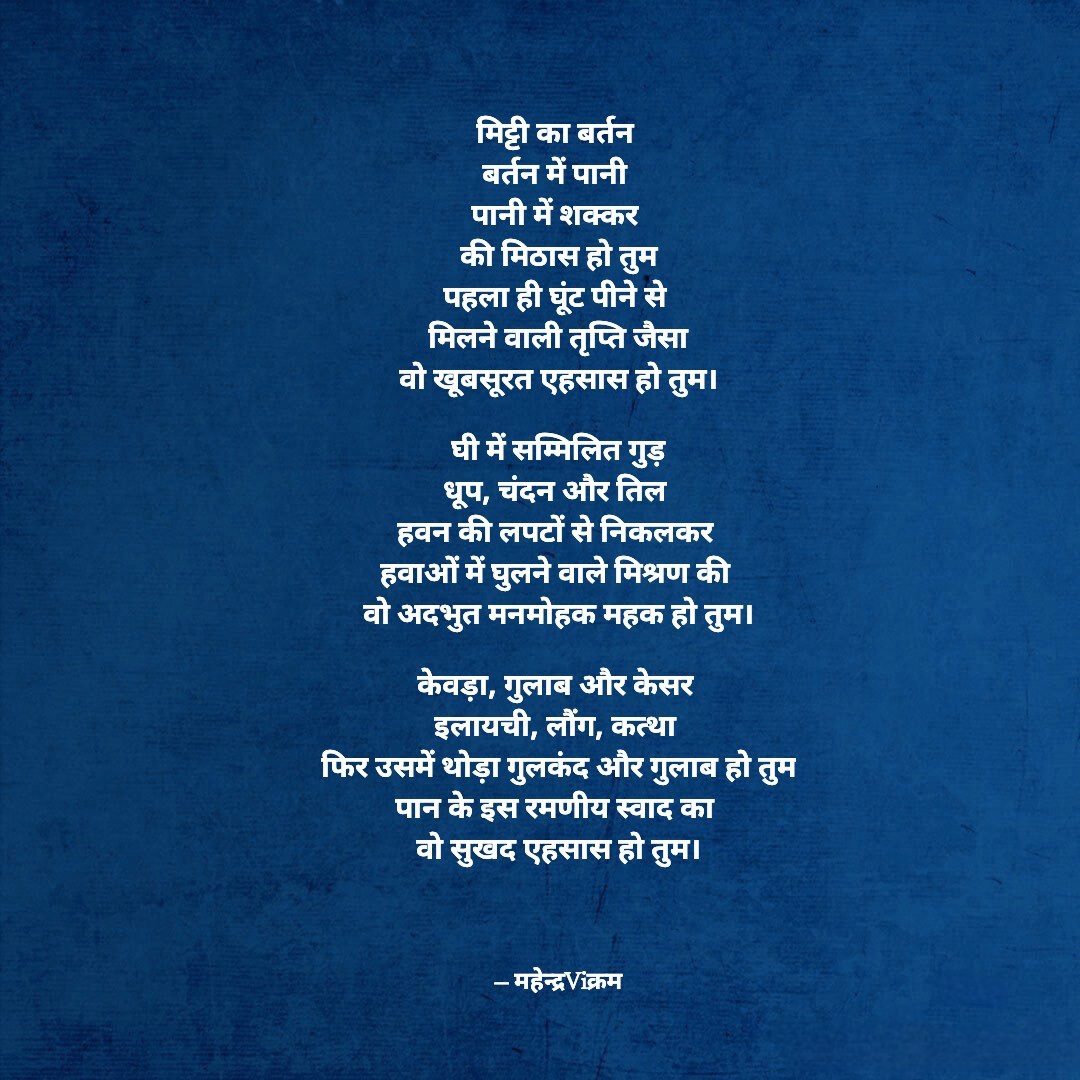 मिट्टी का बर्तन
बर्तन में पानी
पानी में शक्कर
की मिठास हो तुम
पहला ही घूंट पीने से
मिलने वाली तृप्ति जैसा
वो खूबसूरत एहसास हो तुम।
घी में सम्मिलित गुड़
धूप, चंदन और तिल
हवन की लपटों से निकलकर
हवाओं में घुलने वाले मिश्रण की
वो अदभुत मनमोहक महक हो तुम।
केवड़ा, गुलाब और केसर
इलायची, लौंग, कत्था
फिर उसमें थोड़ा गुलकंद और गुलाब हो तुम
पान के इस रमणीय स्वाद का
वो सुखद एहसास हो तुम।
– महेन्द्रViक्रम